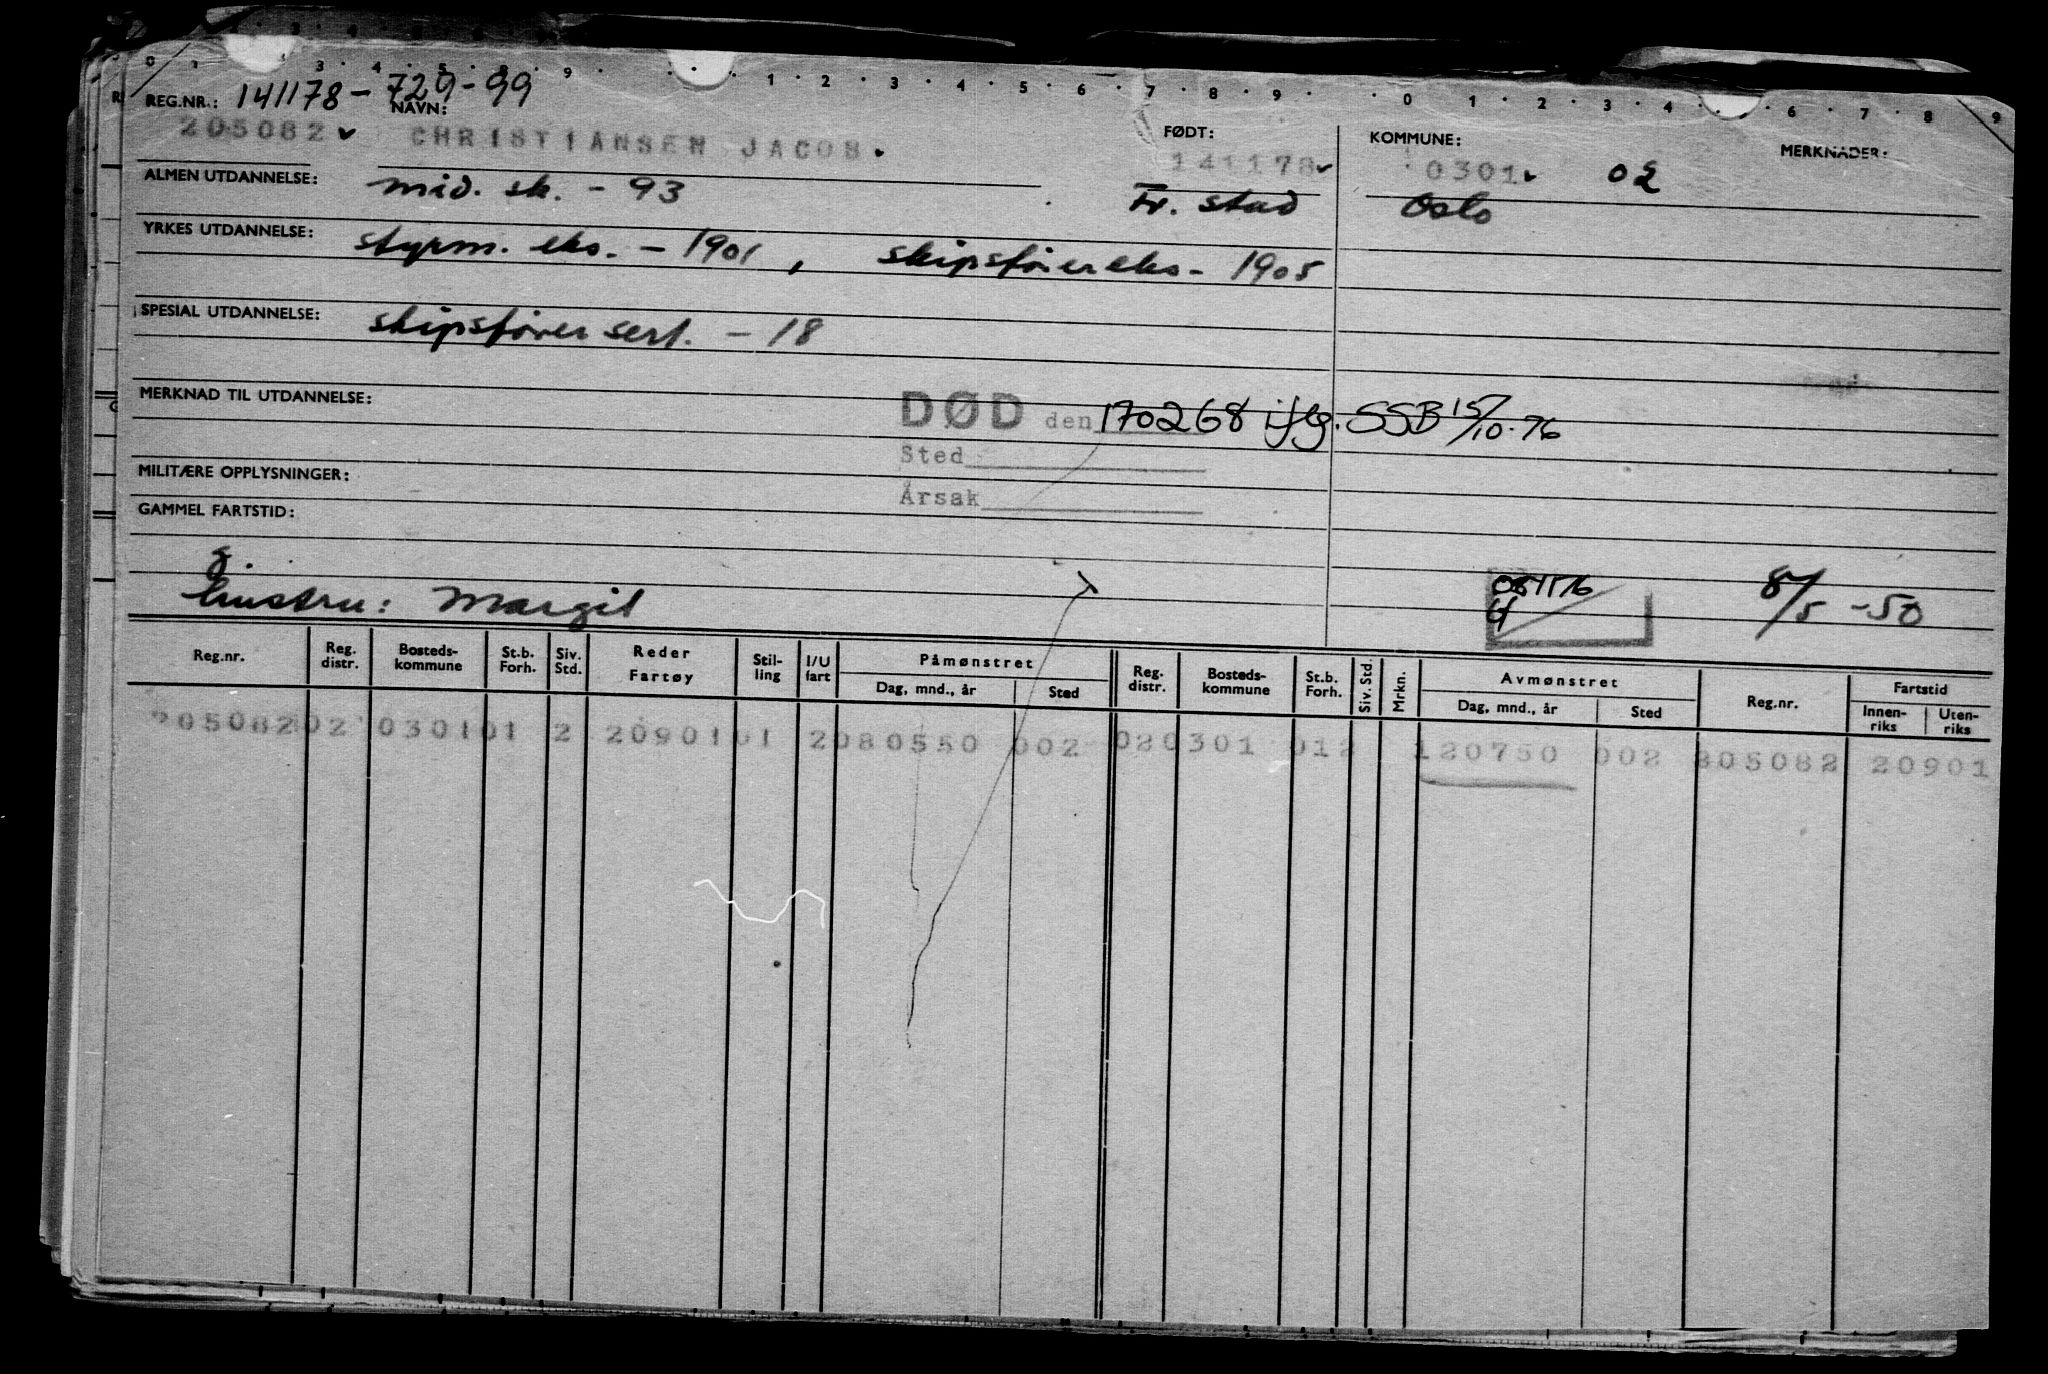 0 1 3 4 5 9 1 2 3 4 5 6 7 8 9 0 1 2 3 4 6 7 8 9
REG.NR.: 141178-729-99 NAVN: FØDT: KOMMUNE: MERKNADER:
205082 CHRISTIANSEN JACOB. 141178 0301 02
ALMEN UTDANNELSE: mid. sk. - 93 Fr. stad Oslo
YRKES UTDANNELSE: styrm. eks. - 1901, skipsförereks - 1905
SPESIAL UTDANNELSE: skipsförer sert. - 18
MERKNAD TIL UTDANNELSE: DØD den 170268 iflg. SSB 15/10-76
Sted
MILITÆRE OPPLYSNINGER:
Årsak
GAMMEL FARTSTID:
g.
hustru: Margit 8/5 - 50
Reg.nr. Reg. distr. Bosteds-kommune St.b. Forh. Siv. Std. Reder Fartøy Stil-ling I/U fart Påmønstret Dag, mnd., år Sted Reg. distr. Bosteds-kommune St.b. Forh. Siv. Std. Mrkn. Avmønstret Dag, mnd., år Sted Reg.nr. Fartstid Innen-riks Uten-riks
205082 02 0301 01 2 20901 01 2 080550 002 02 0301 012 120750 002 205082 20901